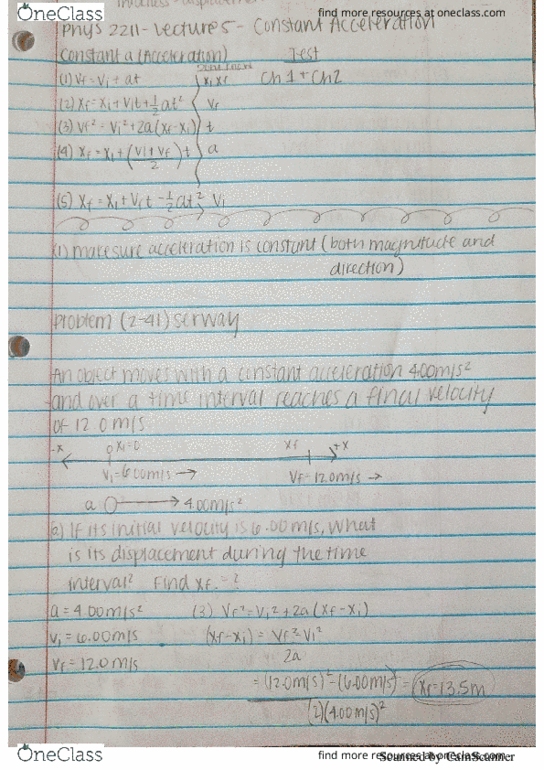 OneClass
find more resources at oneclass.com
Phys 2211-Lecture 5 - Constant Acceleration
Constant a (Acceleration) Test
(1) Vf = Vi + at xi, xf Ch 1 + Ch2
(2) xf = xi + Vit + 1/2 at² Vf
(3) Vf² = Vi² + 2a (xf - xi) t
(4) xf = xi + (Vi + Vf / 2) t a
(5) xf = xi + Vft - 1/2 at² Vi
(1) make sure acceleration is constant (both magnitude and
direction)
Problem (2-41) serway
An object moves with a constant acceleration 4.00m/s²
and over a time interval reaches a final velocity
of 12.0 m/s
-x xi=0 xf +x
Vi=6.00m/s → Vf=12.0m/s →
a → 4.00m/s²
(a) If its initial velocity is 6.00m/s, what
is its displacement during the time
interval? Find xf = ?
a = 4.00m/s² (3) Vf² = Vi² + 2a (xf - xi)
Vi = 6.00m/s (xf - xi) = Vf² - Vi²
Vf = 12.0 m/s 2a
= (12.0m/s)² - (6.00m/s)² = xf = 13.5m
(2)(4.00m/s)²
OneClass
find more resources at oneclass.com
Scanned by CamScanner